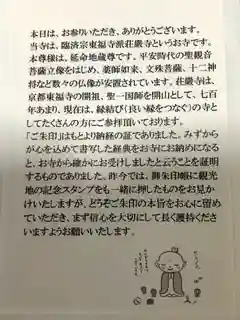 本日は、お参りいただき、ありがとうございます。
当寺は、臨済宗東福寺派荘厳寺というお寺です。
本尊様は、延命地蔵尊です。平安時代の聖観音
菩薩立像をはじめ、薬師如来、文殊菩薩、十二神
将など数々の仏像が安置されています。荘厳寺は、
京都東福寺の開祖、聖一国師を開山として、七百
年あまり、現在は、縁結び(良い縁をつなぐ)の寺と
してたくさんの方にご参拝頂いております。
「ご朱印」はもとより納経の証でありました。みずから
が心を込めて書写した経典をお寺にお納めになる
と、お寺から確かにお受けしましたと云うことを証明
するものでありました。昨今では、御朱印帳に観光
地の記念スタンプをも一緒に押したものをお見か
けいたしますが、どうぞご朱印の本旨をお心に留め
ていただき、まず信心を大切にして長く護持ください
ますようお願いいたします。